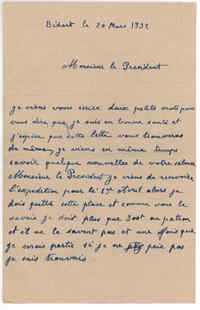 Bidart le 20 Mars 1932
Monsieur le President
je viens vous écrire deux petits mots pour
vous dire que je suis en bonne santé et
j'espère que cette lettre vous trouveras
de même, je viens en même temps
savoir quelque nouvelles de votre
Monsieur le President je viens de recevoir
l'expedition pour le 1er Avril alors je
dois quitté cette place et comme vous le
savais je doit plus que 300f au patron
et il ne le savent pas et une fois que
je serais partie si je ne paie pas
je suis